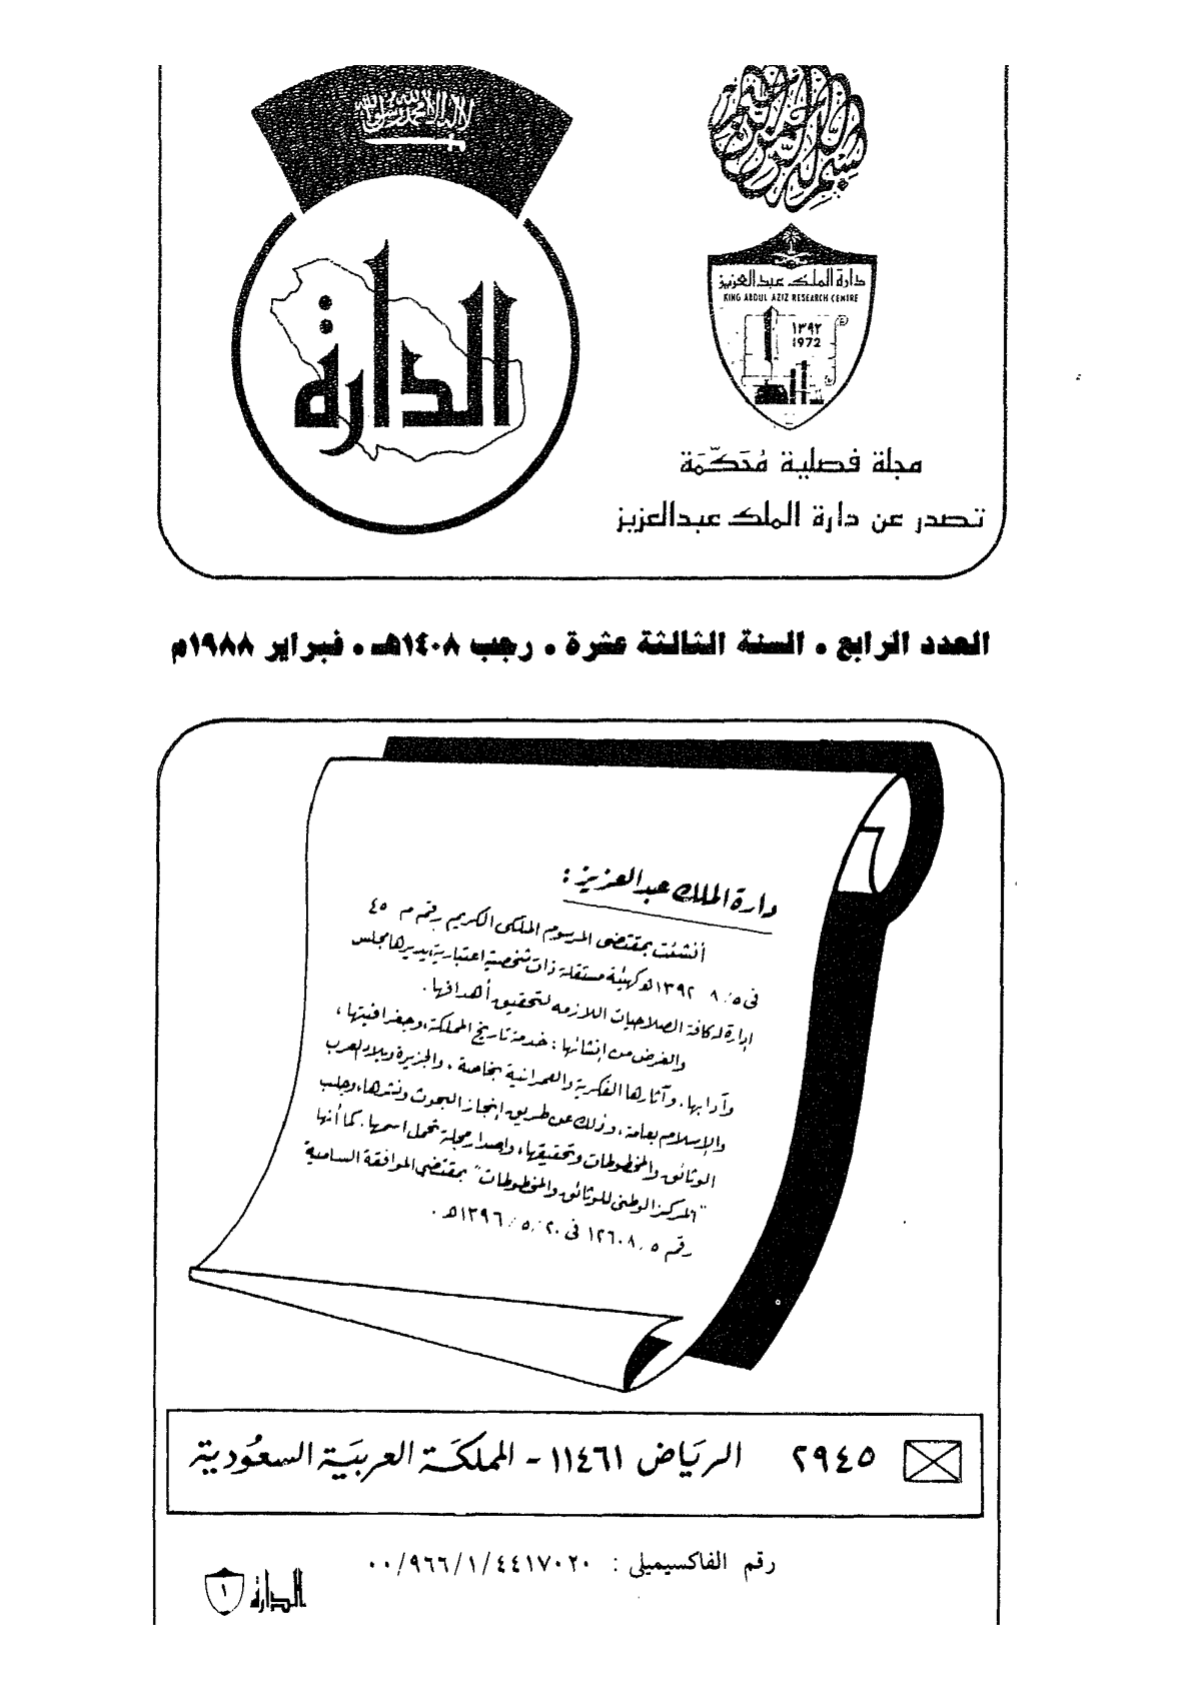 بسم الله الرحمن الرحيم
لا إله إلا الله محمد رسول الله
دارة الملك عبدالعزيز
KING ABDUL AZIZ RESEARCH CENTRE
١٣٩٢
1972
الدارة
مجلة فصلية مُحَكَّمَة
تصدر عن دارة الملك عبدالعزيز
العدد الرابع . السنة الثالثة عشرة . رجب ١٤٠٨هـ . فبراير ١٩٨٨م
دارة الملك عبدالعزيز :
أنشئت بمقتضى المرسوم الملكى الكريم رقم م ٤٥
فى ٨/٠٥ ١٣٩٢هـ كهيئة مستقلة ذات شخصية اعتبارية، يديرها مجلس
إدارة له كافة الصلاحيات اللازمه لتحقيق أهدافها .
والغرض من إنشائها : خدمة تاريخ المملكة، وجغرافيتها ،
وآدابها، وآثارها الفكرية والعمرانية بخاصة ، والجزيرة وبلاد العرب
والإسلام بعامة ، وذلك عن طريق إنجاز البحوث ونشرها، وجلب
الوثائق والمخطوطات وتحقيقها، وإصدار مجلة تحمل اسمها. كما أنها
"المركز الوطنى للوثائق والمخطوطات" بمقتضى الموافقة السامية
رقم ٥/١٢٦٠٨ فى ٢٠/٥/١٣٩٦هـ .
٢٩٤٥ الرياض ١١٤٦١ - المملكَة العربيَة السعُودية
رقم الفاكسيميلى : ٠٠/٩٦٦/١/٤٤١٧٠٢٠
الدارة
١